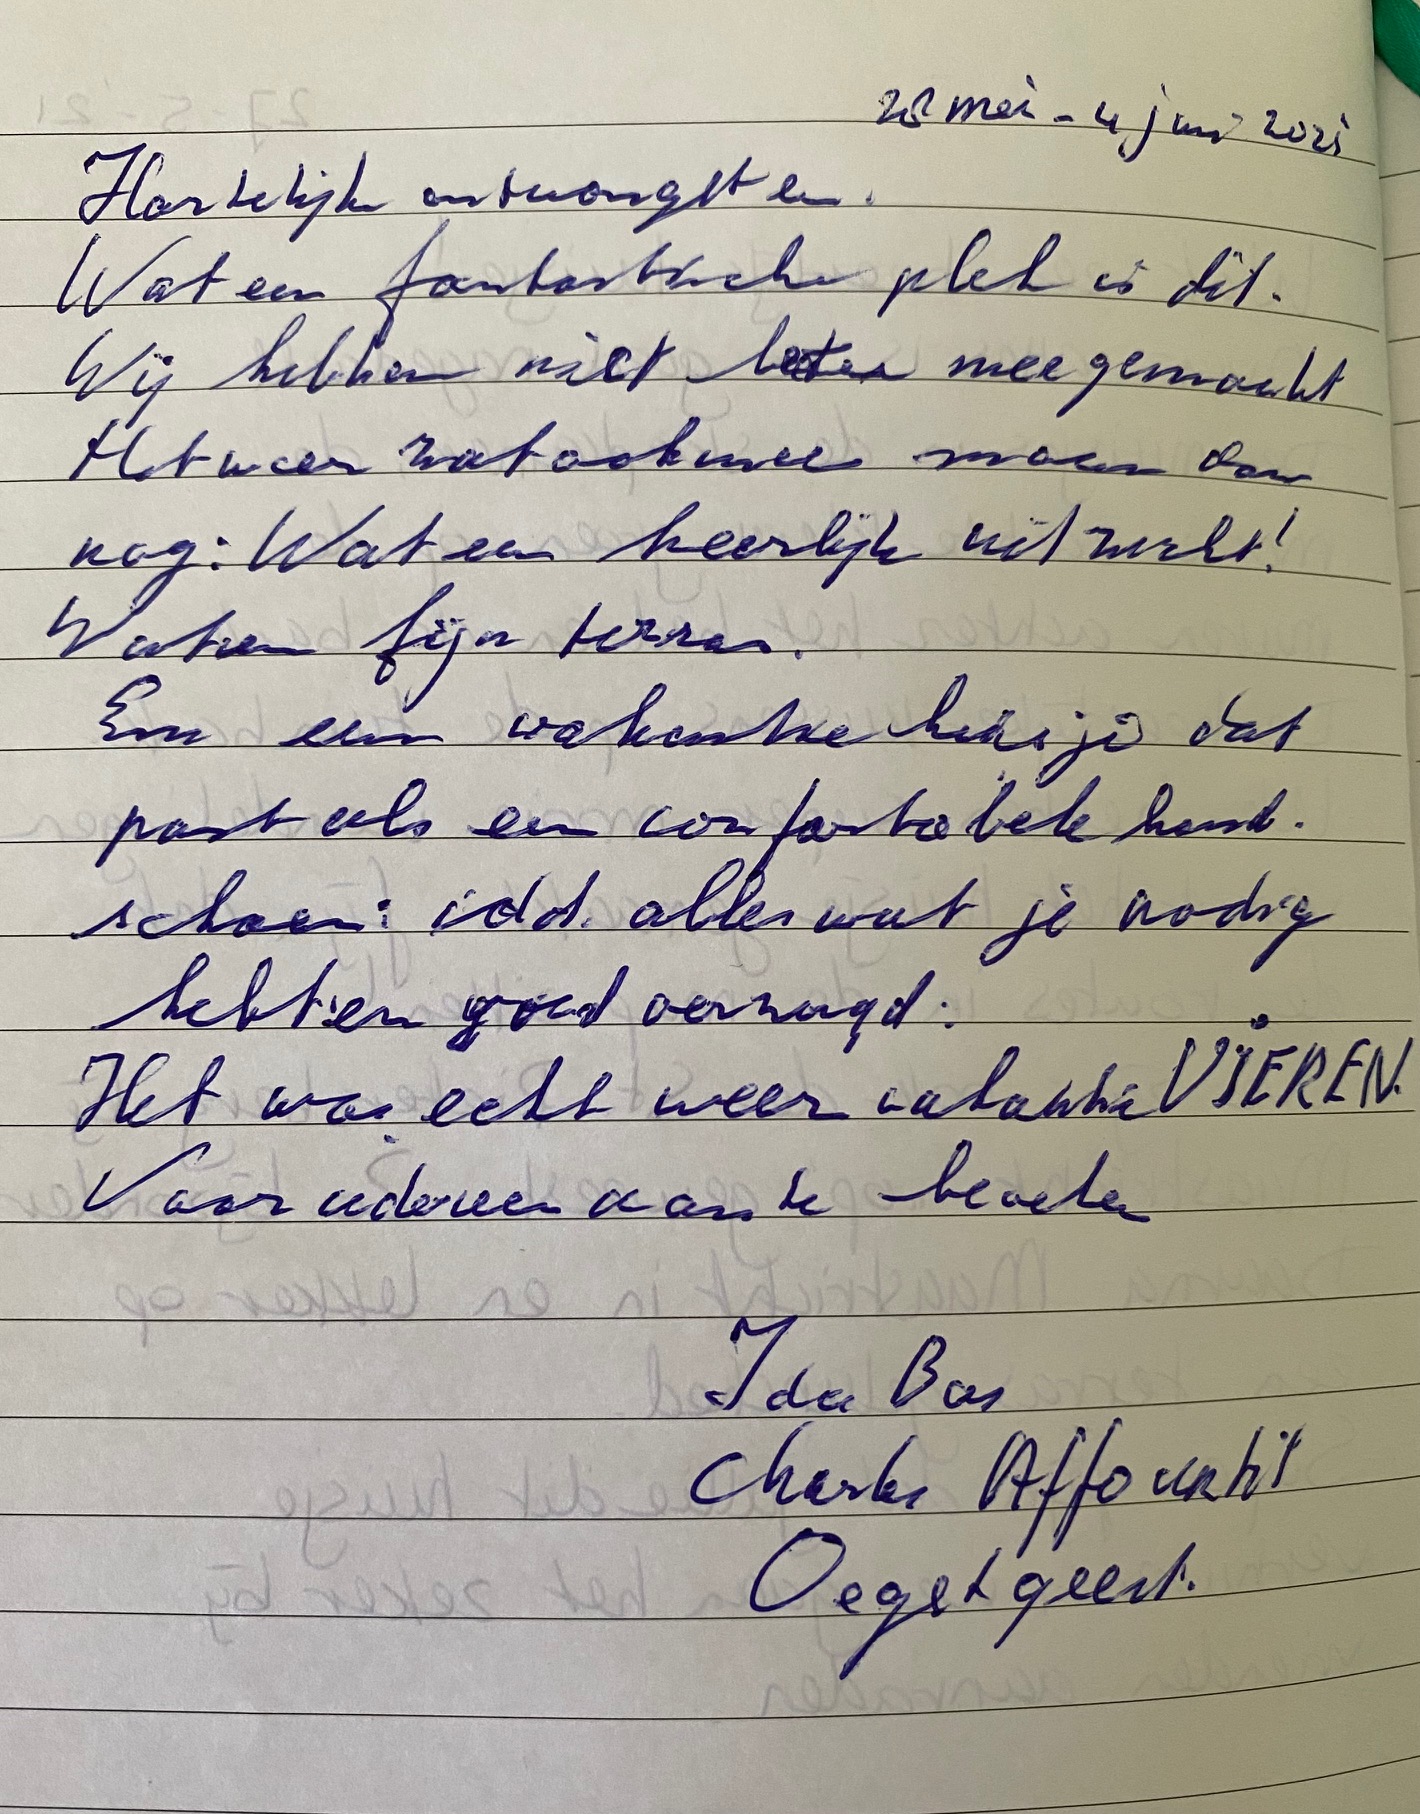 28 mei - 4 juni 2021
Hartelijk ontvangst en.
Wat een fantastische plek is dit.
Wij hebben niet beter meegemaakt
Het weer zat ook mee maar dan
nog: Wat een heerlijk uitzicht!
Wat een fijn terras.
En een vakantie huisje dat
past als een comfortabele hand-
schoen: idd. alles wat je nodig
hebt en goed verzorgd.
Het was echt weer vakantie VIEREN.
Voor iedereen aan te bevelen
Ida Bos
Charles
Oegstgeest.